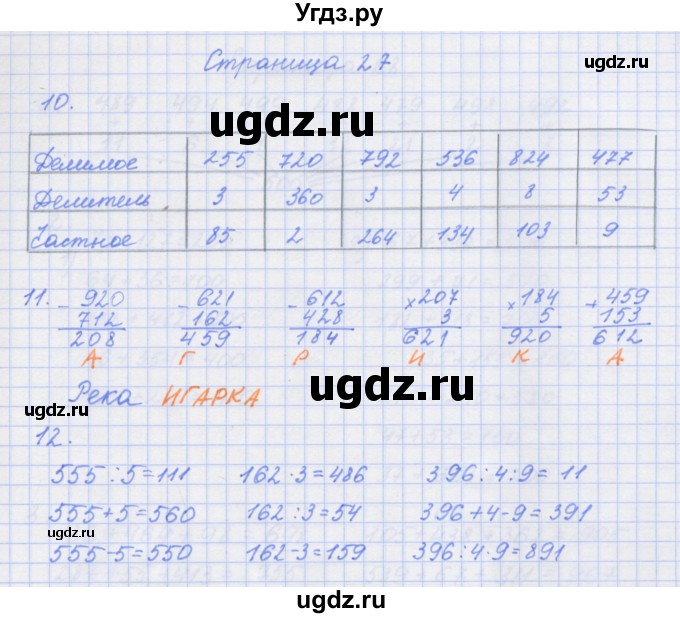 Угдз.ру
Страница 27
10.
ugdz.ru ugdz.ru
Делимое 255 720 792 536 824 477
Делитель 3 360 3 4 8 53
Частное 85 2 264 134 103 9
11. - 920 - 621 - 612 × 207 × 184 + 459
712 162 428 3 5 153
208 459 184 621 920 612
А Г Р И К А
Река ИГАРКА
ugdz.ru ugdz.ru ugdz.ru
12.
555 : 5 = 111 162 · 3 = 486 396 : 4 : 9 = 11
555 + 5 = 560 162 : 3 = 54 396 + 4 - 9 = 391
555 - 5 = 550 162 - 3 = 159 396 : 4 · 9 = 891
ugdz.ru